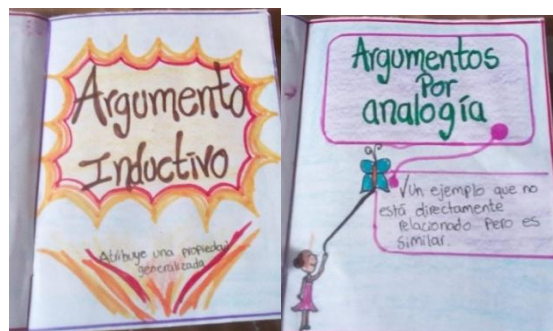 Argumento
Inductivo
Atribuye una propiedad
generalizada
Argumentos
Por
analogía
Un ejemplo que no
está directamente
relacionado pero es
similar.